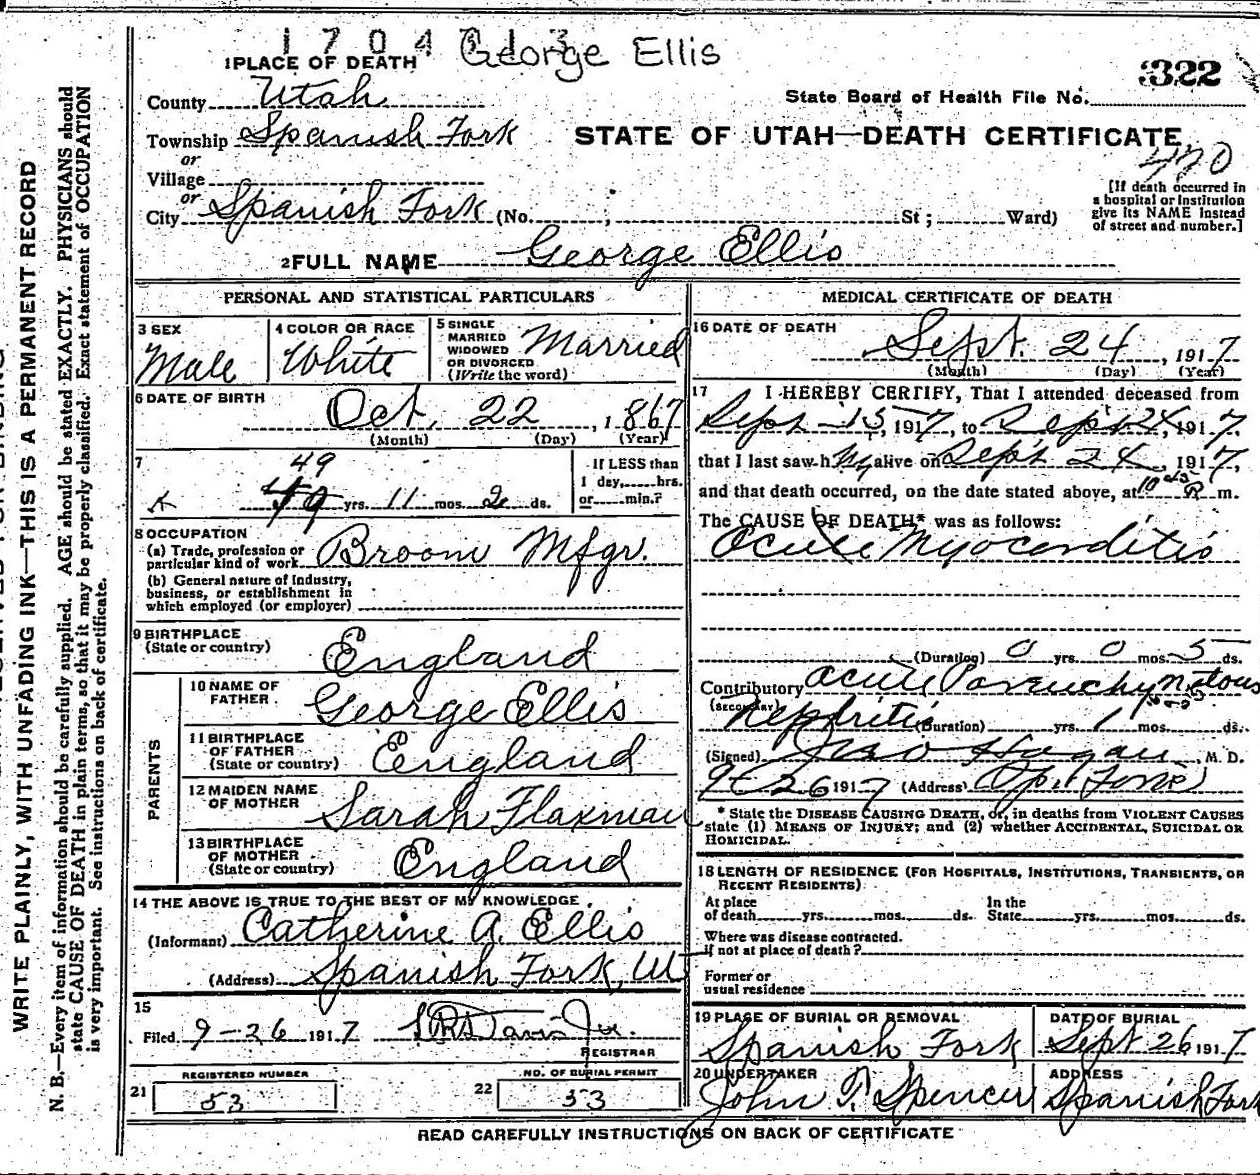 1 7 0 4 3 1 3 George Ellis
322
1 PLACE OF DEATH
State Board of Health File No.
County Utah
Township Spanish Fork
STATE OF UTAH—DEATH CERTIFICATE
470
or
Village
or
City Spanish Fork (No. ; St ; Ward)
[If death occurred in
a hospital or institution
give its NAME instead
of street and number.]
2 FULL NAME George Ellis
PERSONAL AND STATISTICAL PARTICULARS
3 SEX
Male
4 COLOR OR RACE
White
5 SINGLE
MARRIED
WIDOWED
OR DIVORCED
(Write the word)
Married
6 DATE OF BIRTH
Oct. 22, 1867
(Month) (Day) (Year)
7
49
49 yrs. 11 mos. 2 ds.
If LESS than
1 day, hrs.
or min.?
8 OCCUPATION
(a) Trade, profession or
particular kind of work Broom Mfgr.
(b) General nature of Industry,
business, or establishment in
which employed (or employer)
9 BIRTHPLACE
(State or country) England
PARENTS
10 NAME OF
FATHER George Ellis
11 BIRTHPLACE
OF FATHER
(State or country) England
12 MAIDEN NAME
OF MOTHER Sarah Flaxman
13 BIRTHPLACE
OF MOTHER
(State or country) England
14 THE ABOVE IS TRUE TO THE BEST OF MY KNOWLEDGE
(Informant) Catherine A. Ellis
(Address) Spanish Fork, Ut
15
Filed 9-26 1917
REGISTRAR
REGISTERED NUMBER
21 53
NO. OF BURIAL PERMIT
22 53
MEDICAL CERTIFICATE OF DEATH
16 DATE OF DEATH
Sept. 24, 1917
(Month) (Day) (Year)
17 I HEREBY CERTIFY, That I attended deceased from
Sept 15, 1917, to Sept 24, 1917,
that I last saw h im alive on Sept 24, 1917,
and that death occurred, on the date stated above, at 10 45 P m.
The CAUSE OF DEATH* was as follows:
Acute Myocarditis
(Duration) 0 yrs. 0 mos. 5 ds.
Contributory Acute Parenchymatous
(SECONDARY) Nephritis (Duration) yrs. 1 mos. ds.
(Signed) Jno Hagan, M. D.
9-26 1917 (Address) Sp. Fork
* State the DISEASE CAUSING DEATH, or, in deaths from VIOLENT CAUSES
state (1) MEANS OF INJURY; and (2) whether ACCIDENTAL, SUICIDAL OR
HOMICIDAL.
18 LENGTH OF RESIDENCE (FOR HOSPITALS, INSTITUTIONS, TRANSIENTS, OR
RECENT RESIDENTS)
At place
of death yrs. mos. ds.
In the
State yrs. mos. ds.
Where was disease contracted.
if not at place of death?
Former or
usual residence
19 PLACE OF BURIAL OR REMOVAL
Spanish Fork
DATE OF BURIAL
Sept 26 1917
20 UNDERTAKER
John T. Spencer
ADDRESS
Spanish Fork
READ CAREFULLY INSTRUCTIONS ON BACK OF CERTIFICATE
WRITE PLAINLY, WITH UNFADING INK—THIS IS A PERMANENT RECORD
N. B.—Every item of information should be carefully supplied. AGE should be stated EXACTLY. PHYSICIANS should
state CAUSE OF DEATH in plain terms, so that it may be properly classified. Exact statement of OCCUPATION
is very important. See instructions on back of certificate.